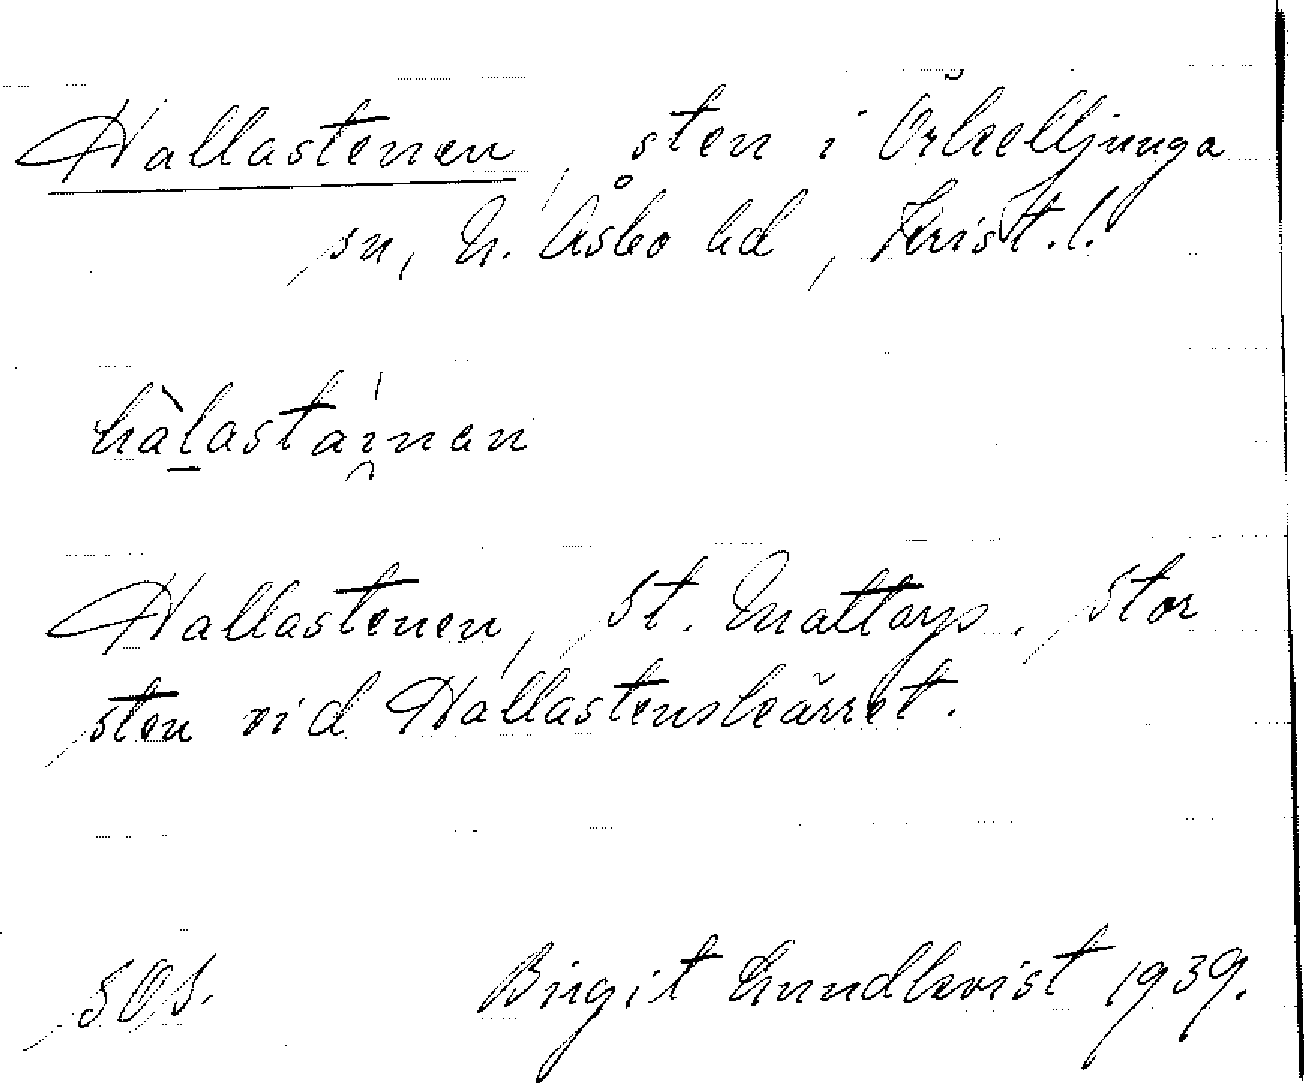 Hallastenen, sten i Örkelljunga
sn, N. Åsbo hd, Krist. l.
hàlastáinan
Hallastenen, St. Mattarp. Stor
sten vid Hallastenskärret.
SOS. Birgit Lundkvist 1939.